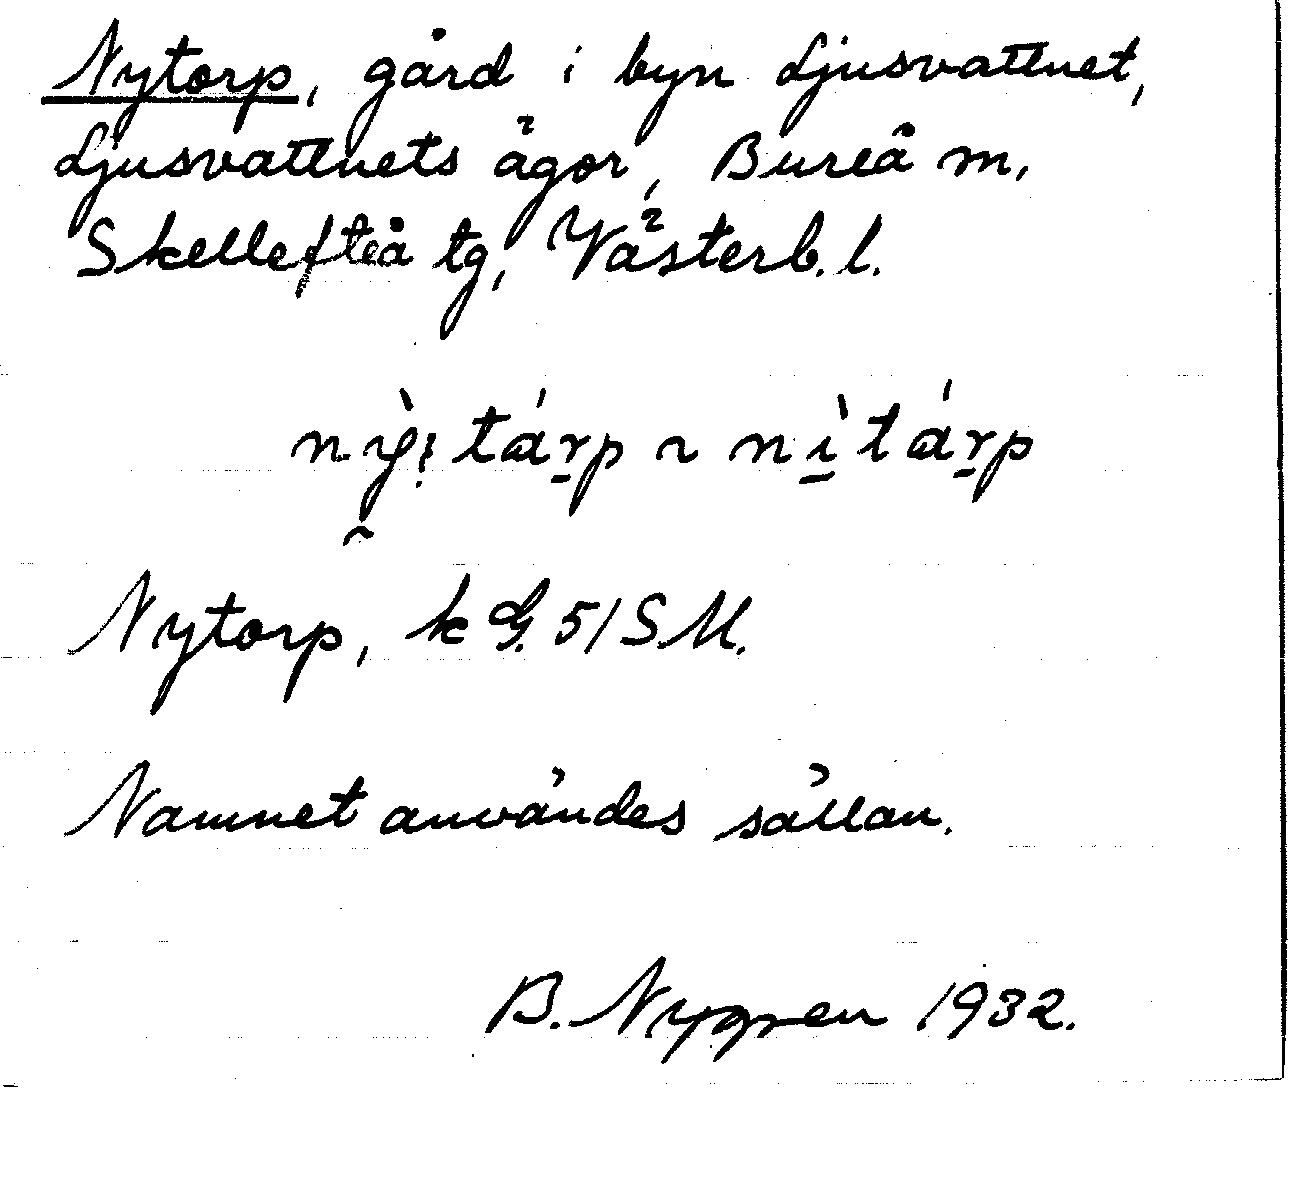 Nytorp, gård i byn Ljusvattnet,
Ljusvattnets ägor, Bureå m,
Skellefteå tg, Västerb. l.
Nytorp, k G. 51 SM.
Namnet användes sällan.
B. Nygren 1932.